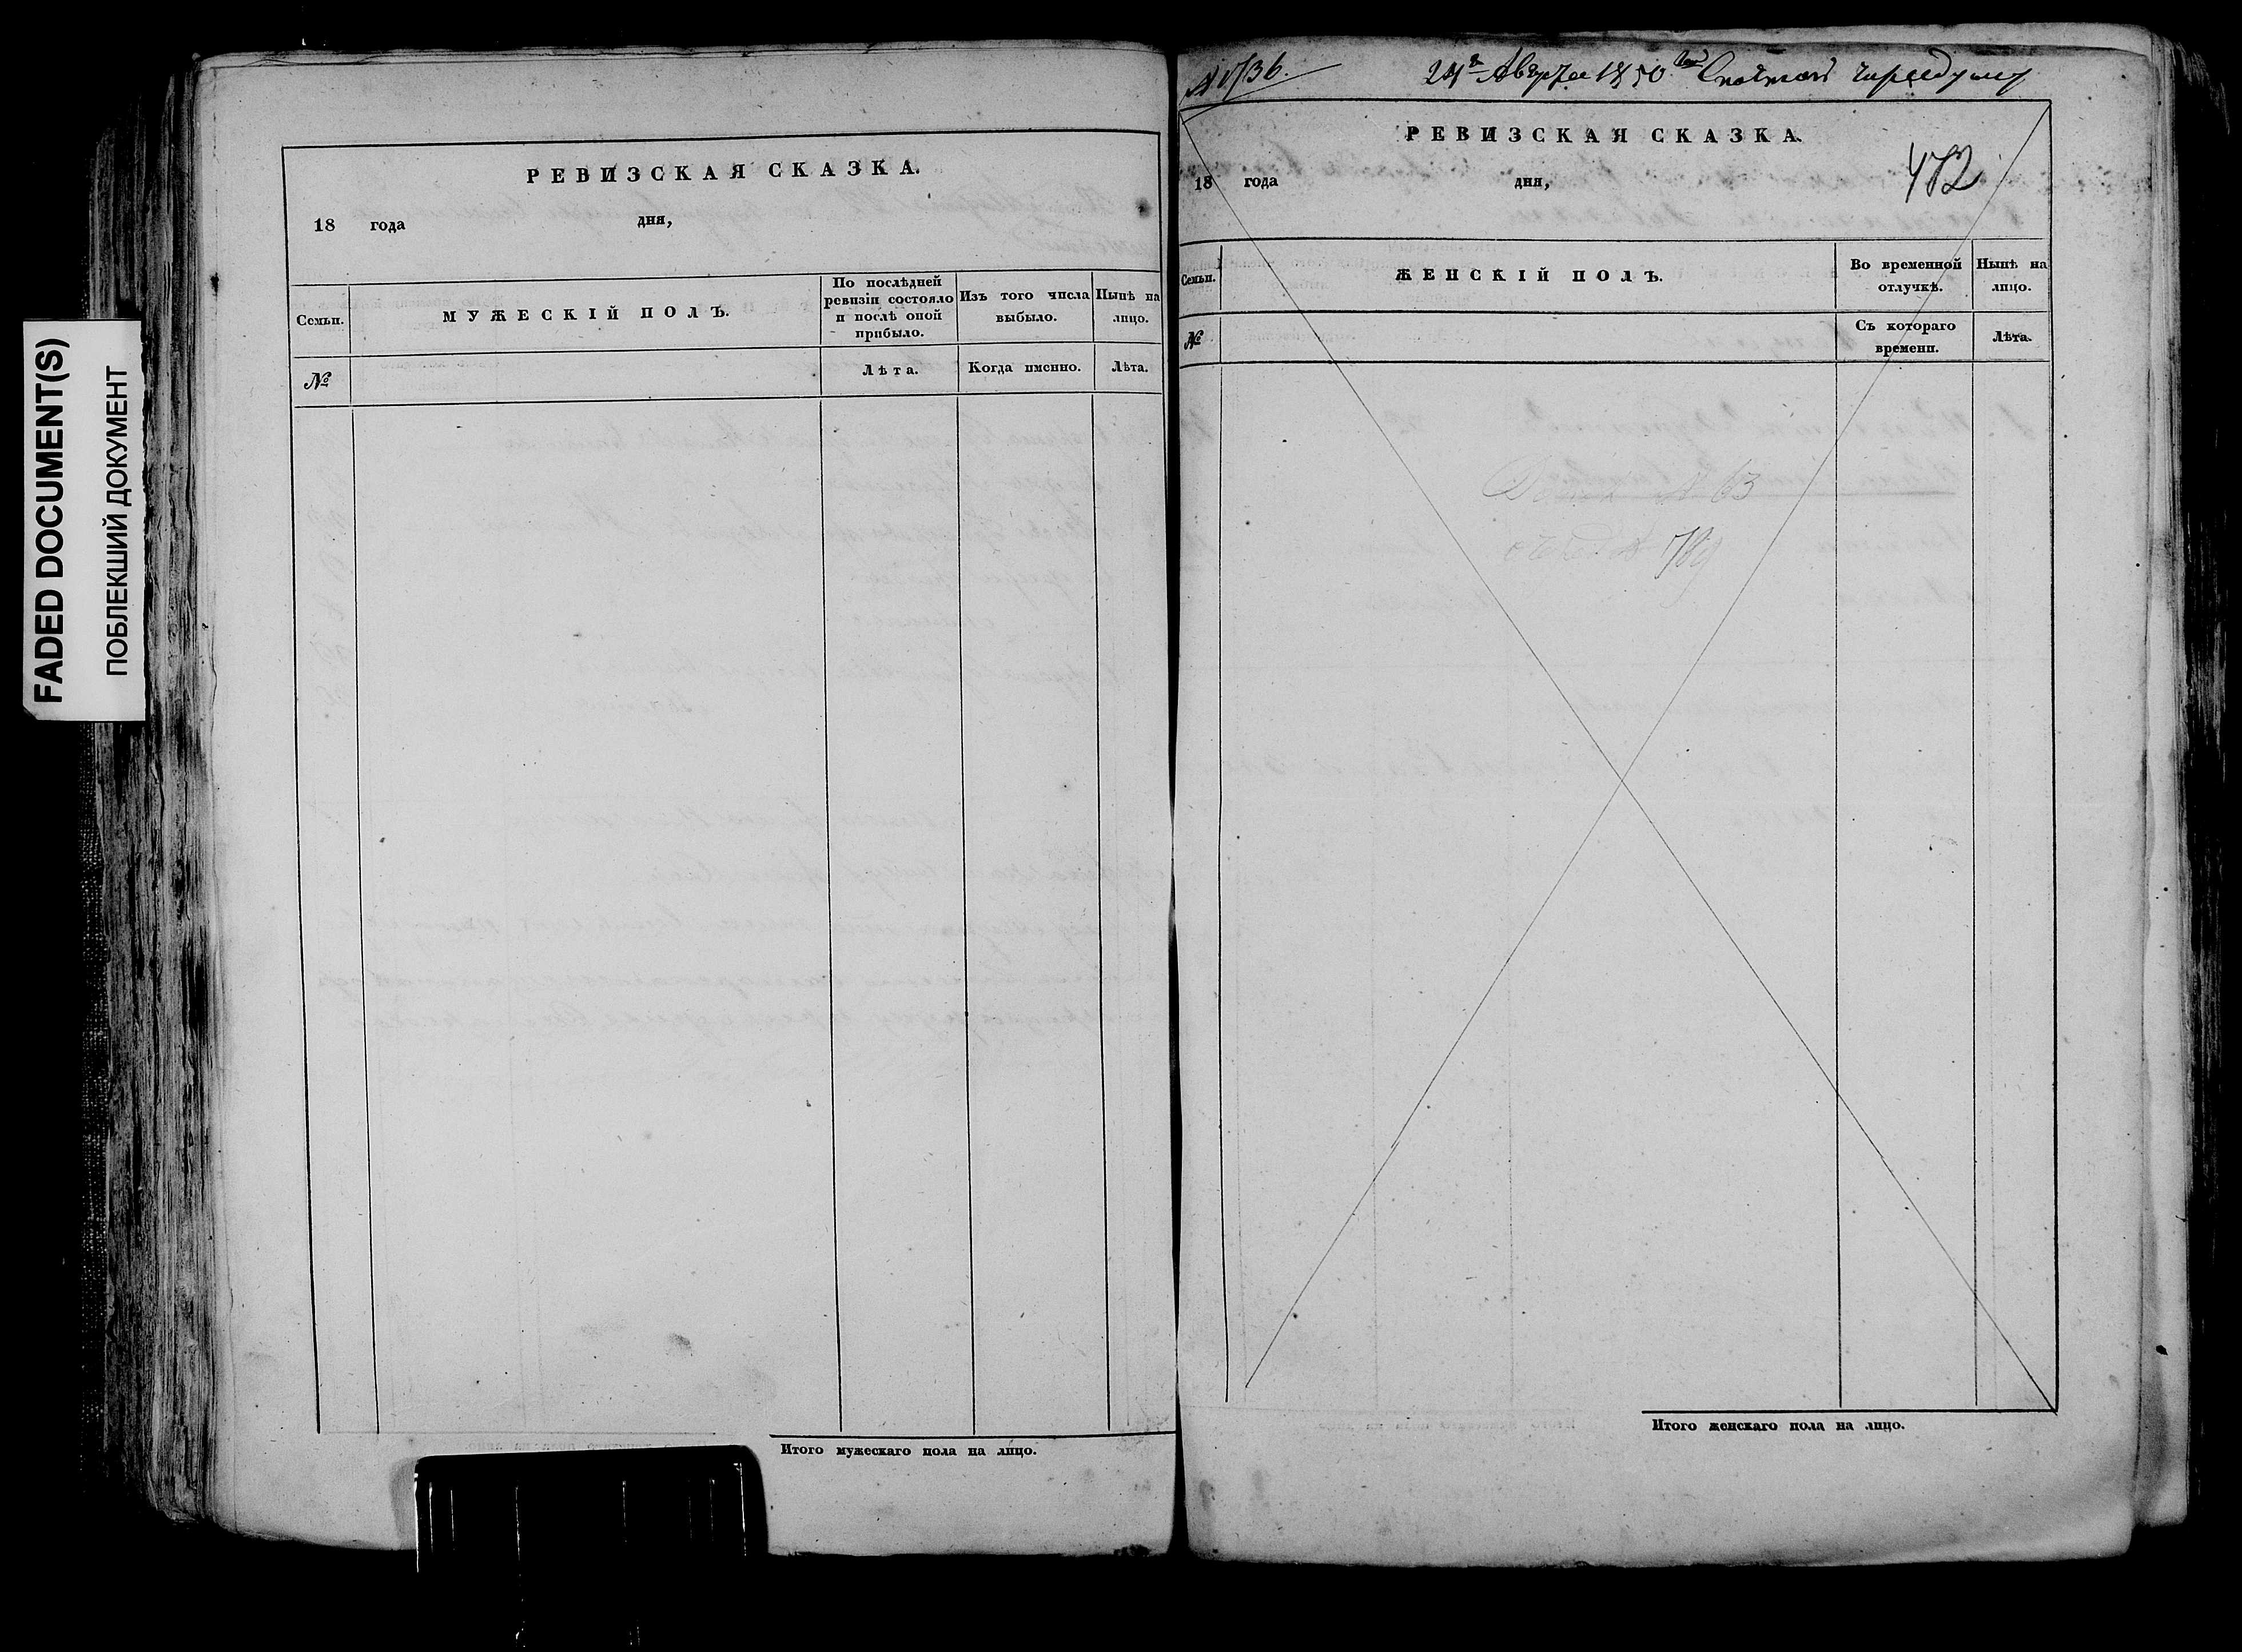 FADED DOCUMENT(S)
ПОБЛЕКШИЙ ДОКУМЕНТ
РЕВИЗСКАЯ СКАЗКА.
18 года дня,
Семьи.
МУЖЕСКІЙ ПОЛЪ.
По послѣдней ревизіи состояло и послѣ оной прибыло.
Изъ того числа выбыло.
Нынѣ на лицо.
№
Лѣта.
Когда именно.
Лѣта.
Итого мужескаго пола на лицо.
№ 1736.
24 Августа 1850
РЕВИЗСКАЯ СКАЗКА.
472
18 года дня,
Семьи.
ЖЕНСКІЙ ПОЛЪ.
Во временной отлучкѣ.
Нынѣ на лицо.
№
Съ котораго времени.
Лѣта.
№ 63
789
Итого женскаго пола на лицо.